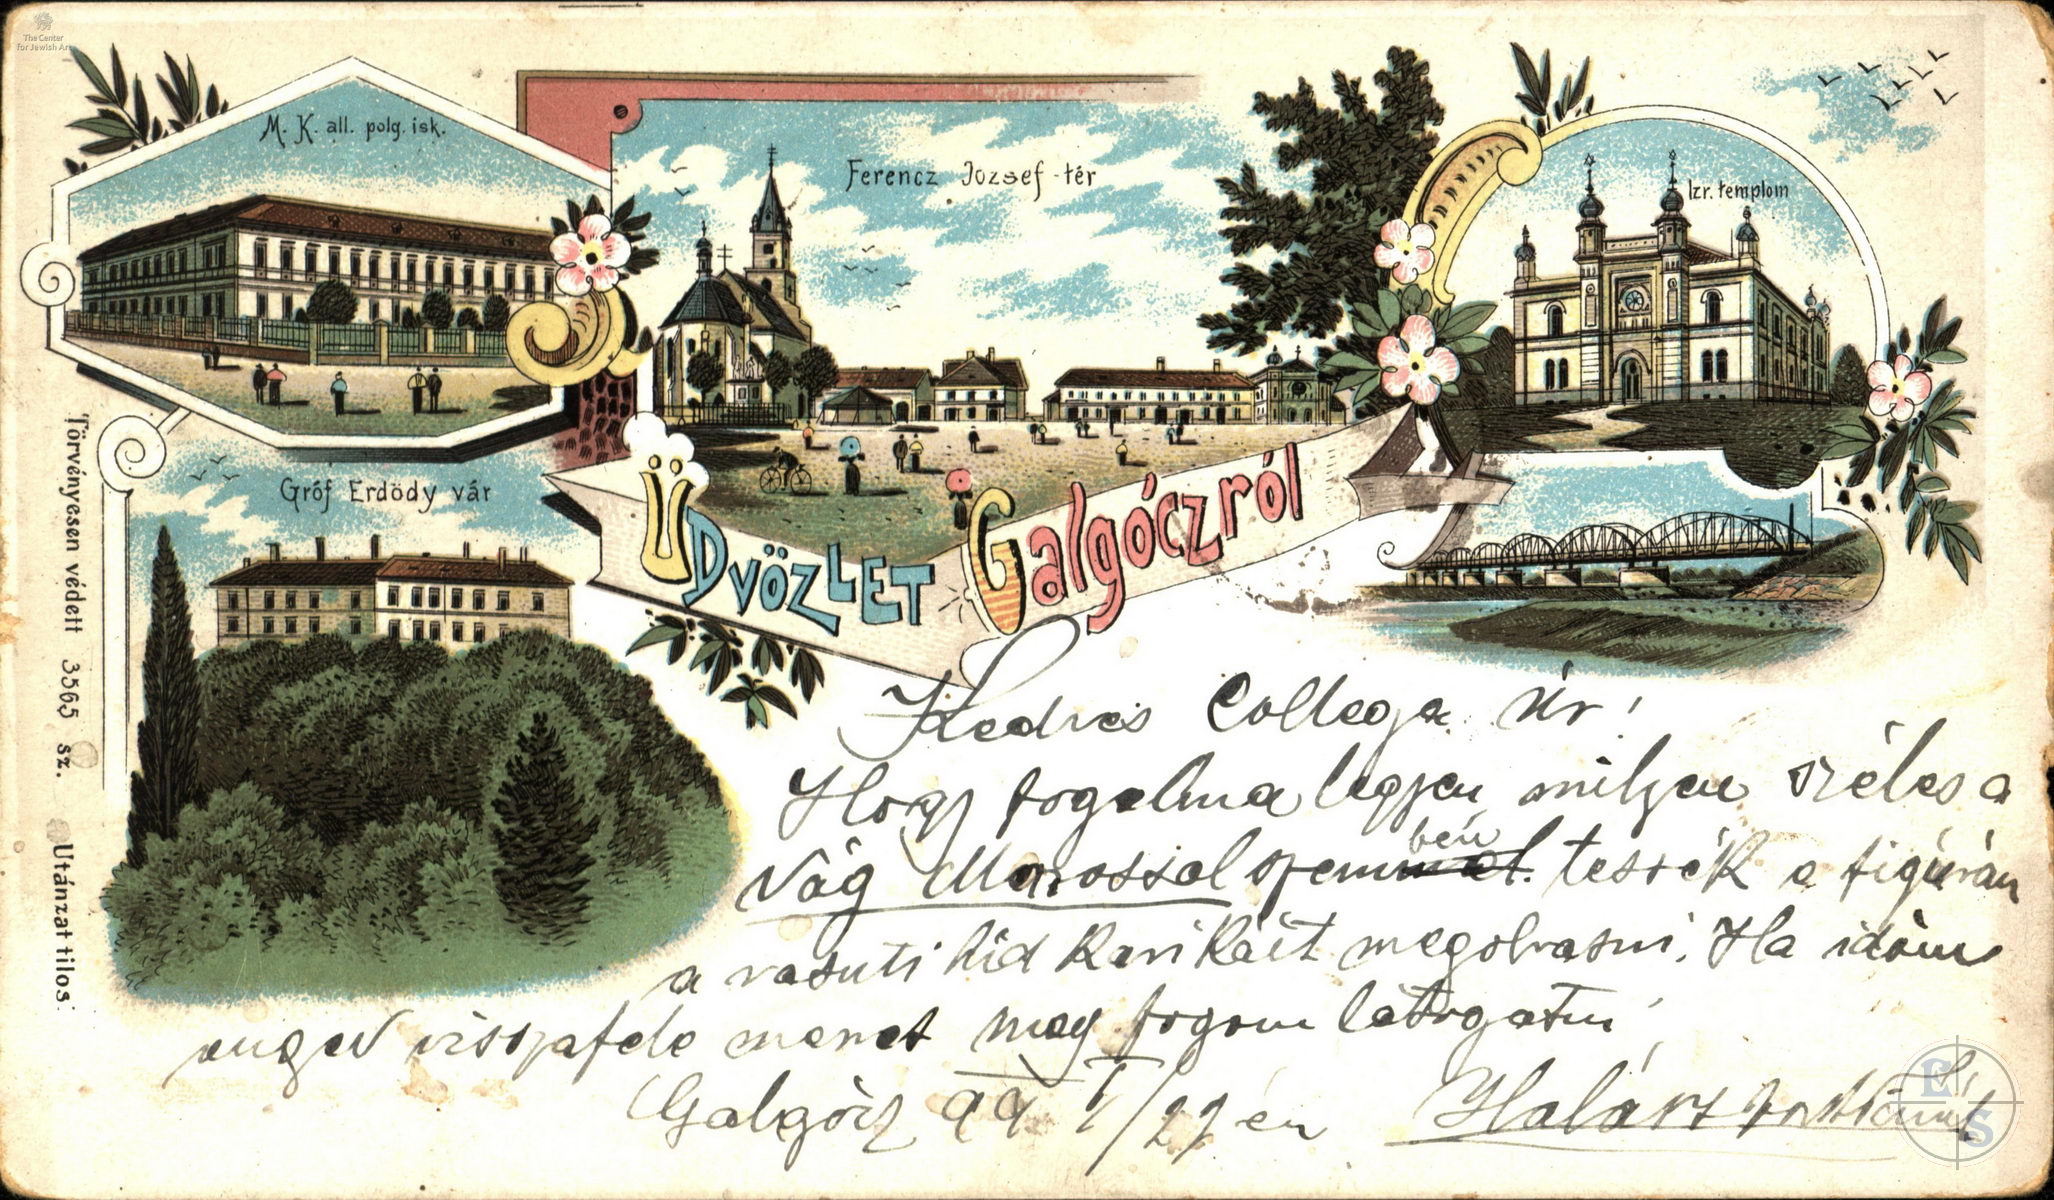 The Center
for Jewish Art
M. K. all. polg. isk.
Ferencz Jozsef-tér
Izr. templom
Gróf Erdödy vár
Üdvözlet Galgóczról
Törvényesen védett 3565 sz. Utánzat tilos
Kedves Collega Úr!
Hogy fogalma legyen milyen széles a
Vág Marossal szemben tessék a figúrán
a vasuti hid karikáit megolvasni. Ha időm
enged visszafele menet meg fogom látogatni
Galgócz 99 I/27 én
ES